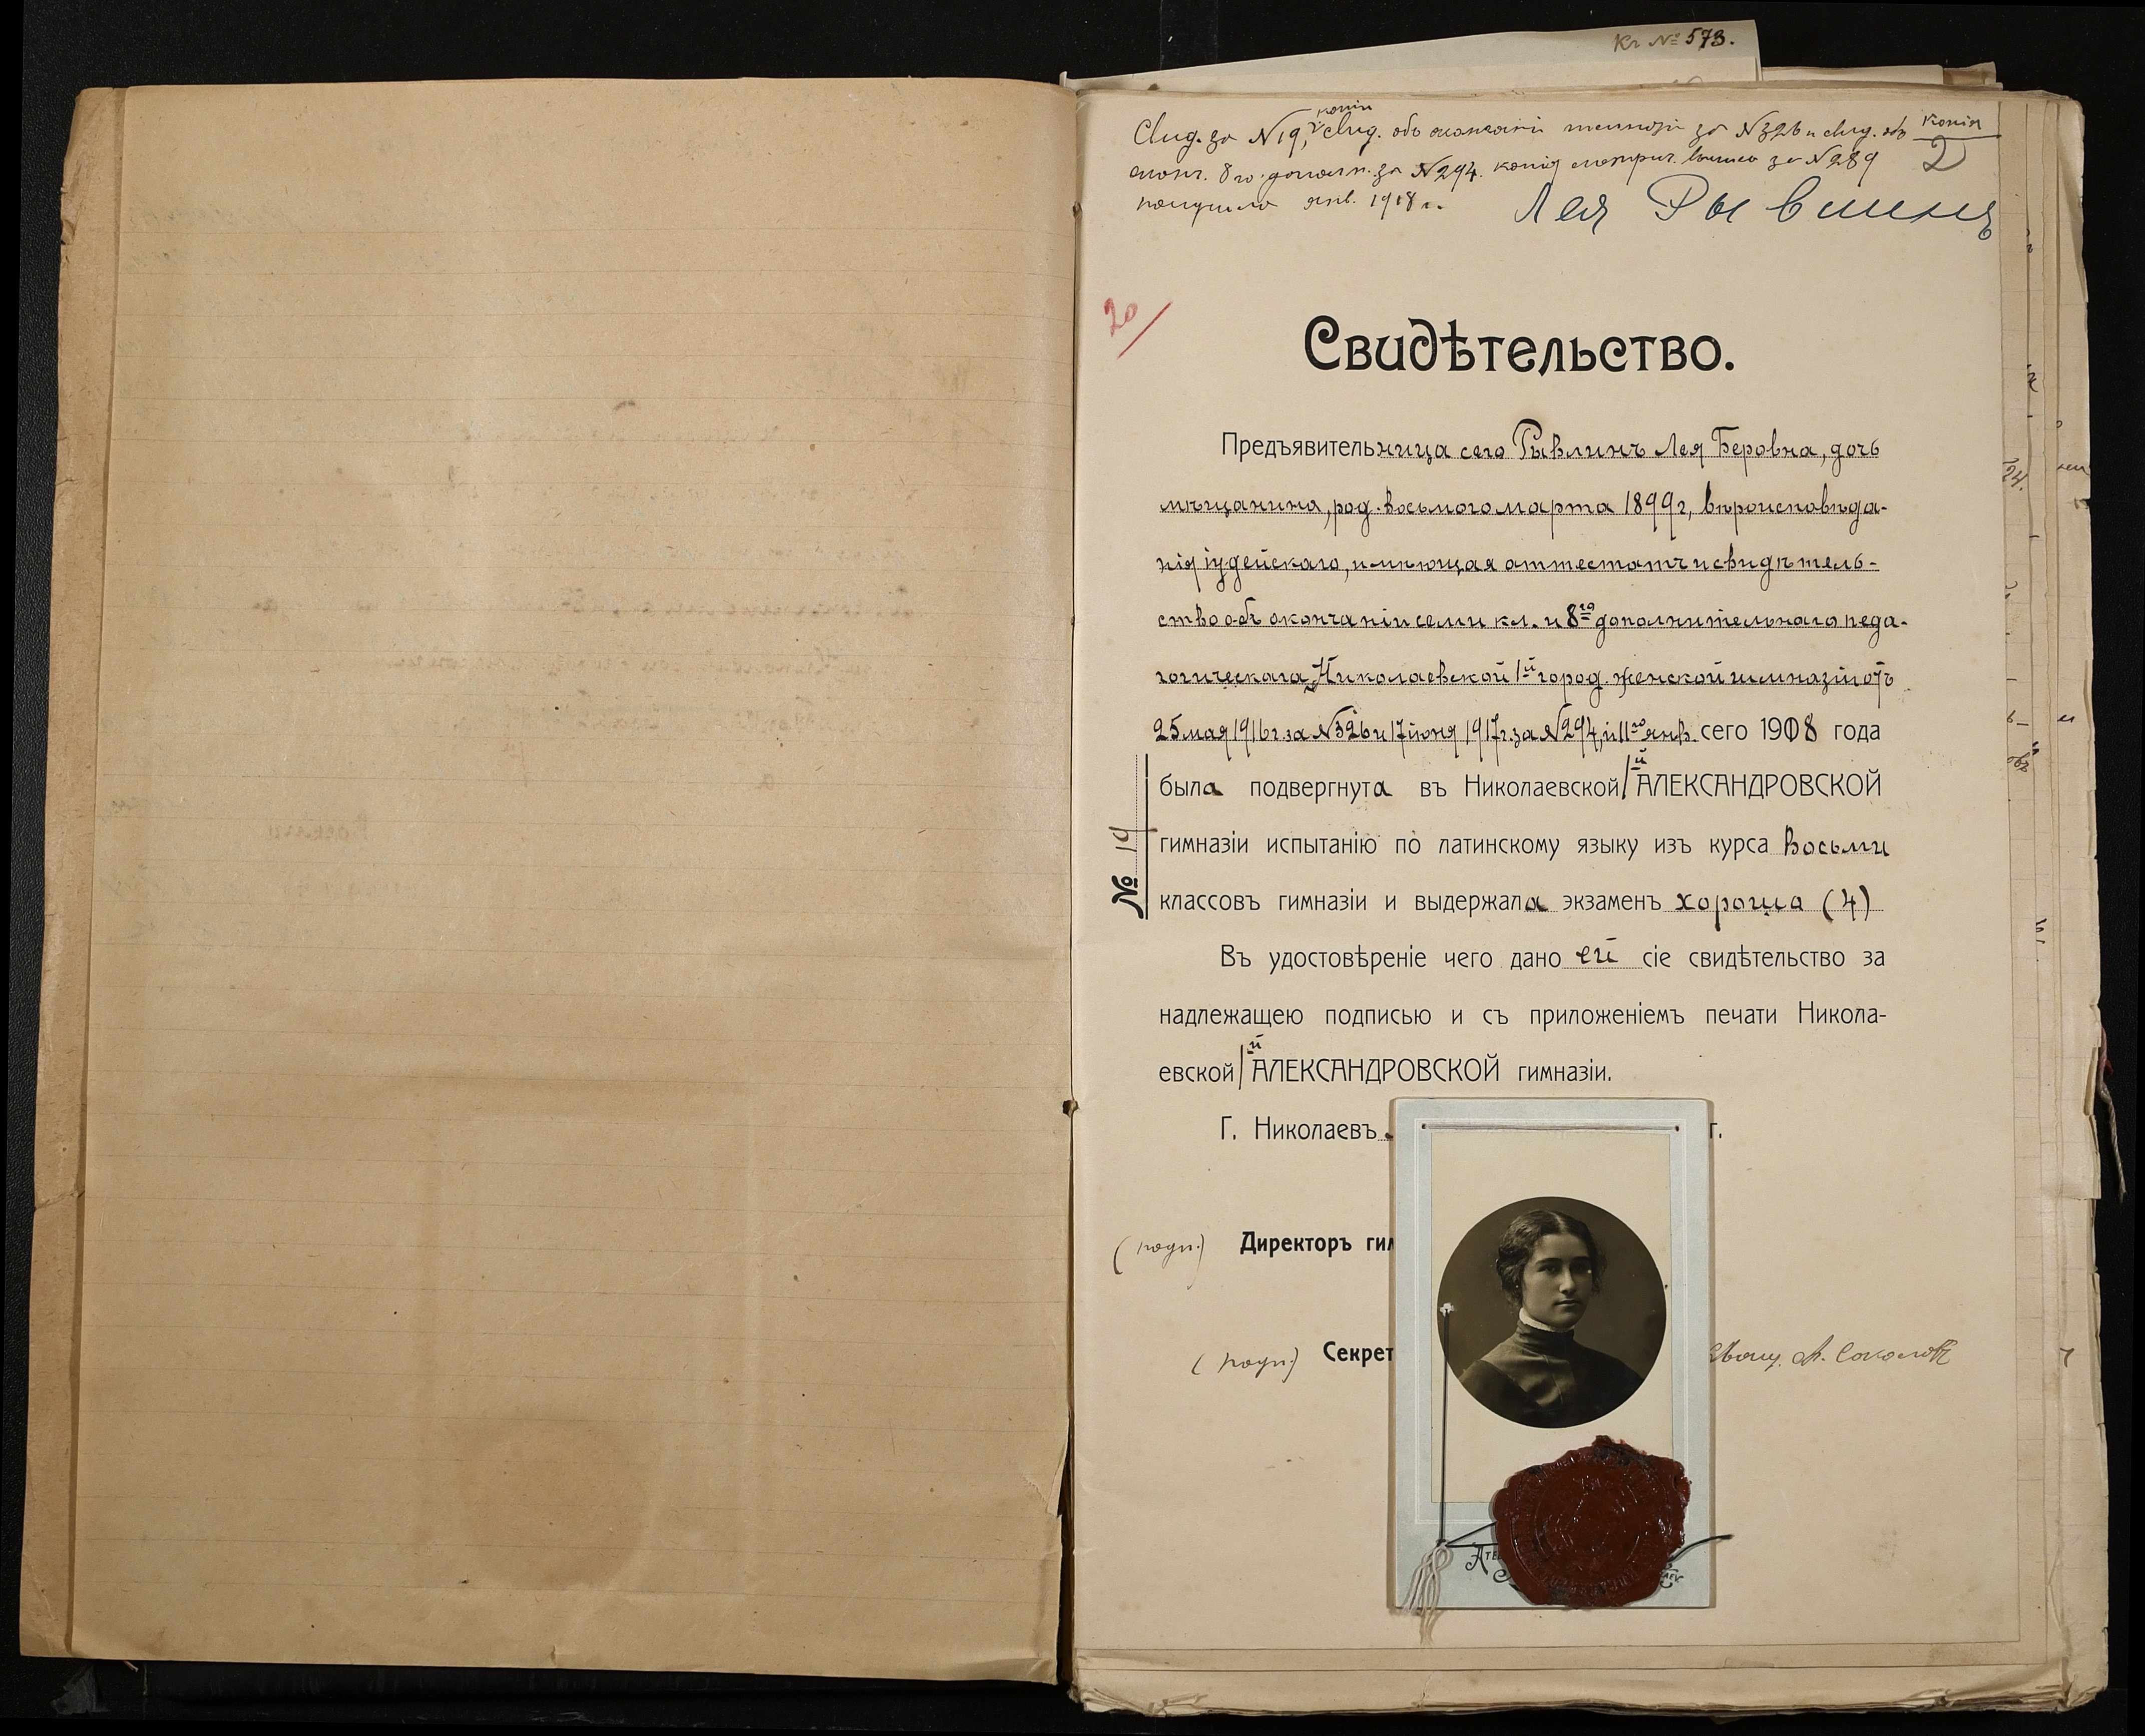 Кг № 573.
копіи
Свид. за №19, Свид. об окончаніи гимназіи за №326 и свид. объ
оконч. 8го дополн. за №294. копію метрич. выписи за №289
получила янв. 1918 г.
Копія
2
Лея Рывлинъ
20
Свидѣтельство.
Предъявительница сего Рывлинъ Лея Беровна, дочь
мѣщанина, род. восьмого марта 1899 г, вѣроисповѣда-
нія іудейскаго, имѣющая аттестатъ и свидѣтель-
ство объ окончаніи семи кл. и 8го дополнительнаго педа-
гогическаго Николаевской 1й город. женской гимназіи отъ
25 мая 1916 г. за №326 и 17 іюня 1917 г. за №294, и 11го янв. сего 1918 года
была подвергнута въ Николаевской 1й АЛЕКСАНДРОВСКОЙ
гимназіи испытанію по латинскому языку изъ курса восьми
№ 19
классовъ гимназіи и выдержала экзаменъ хорошо (4)
Въ удостовѣреніе чего дано ей сіе свидѣтельство за
надлежащею подписью и съ приложеніемъ печати Никола-
евской 1й АЛЕКСАНДРОВСКОЙ гимназіи.
Г. Николаевъ г.
(подп.) Директоръ гим
(подп.) Секрет А. Соколовъ